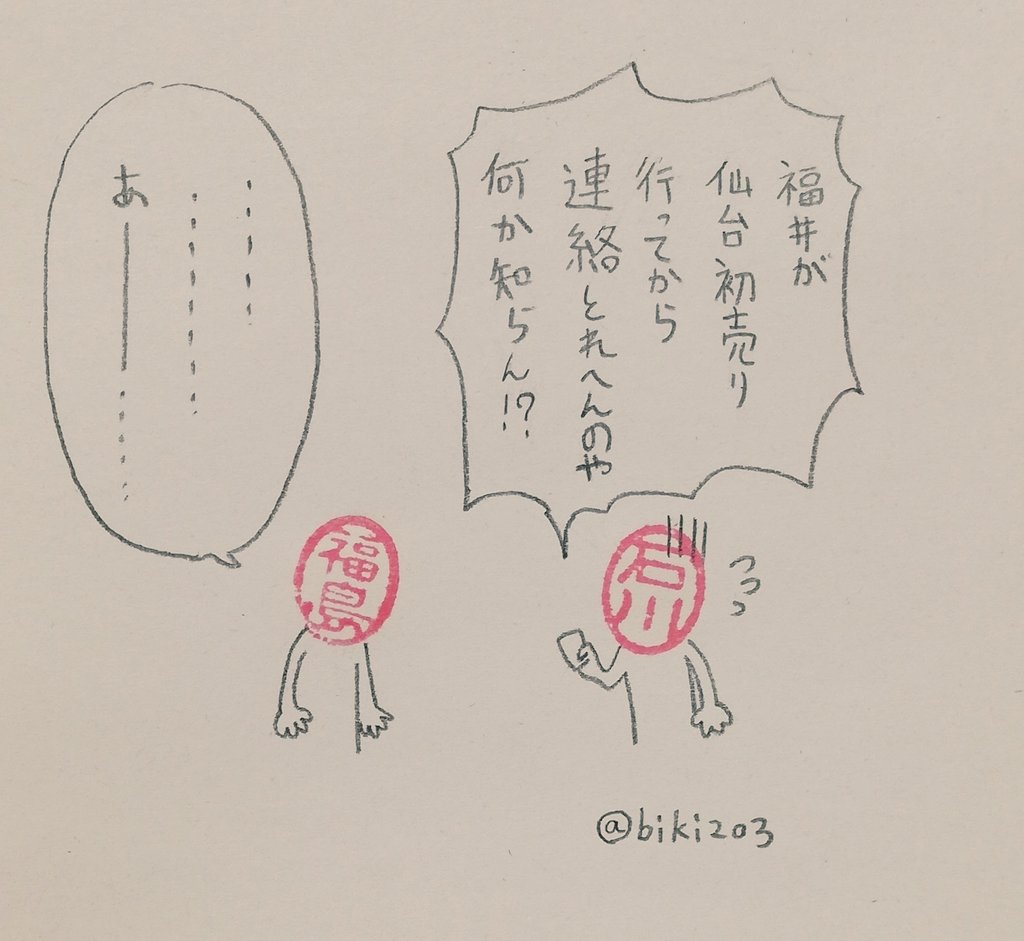 福井が
仙台初売り
行ってから
連絡とれへんのや
何か知らん!?
‥‥‥
‥‥‥‥
あ――‥‥‥
石川
福島
@biki203